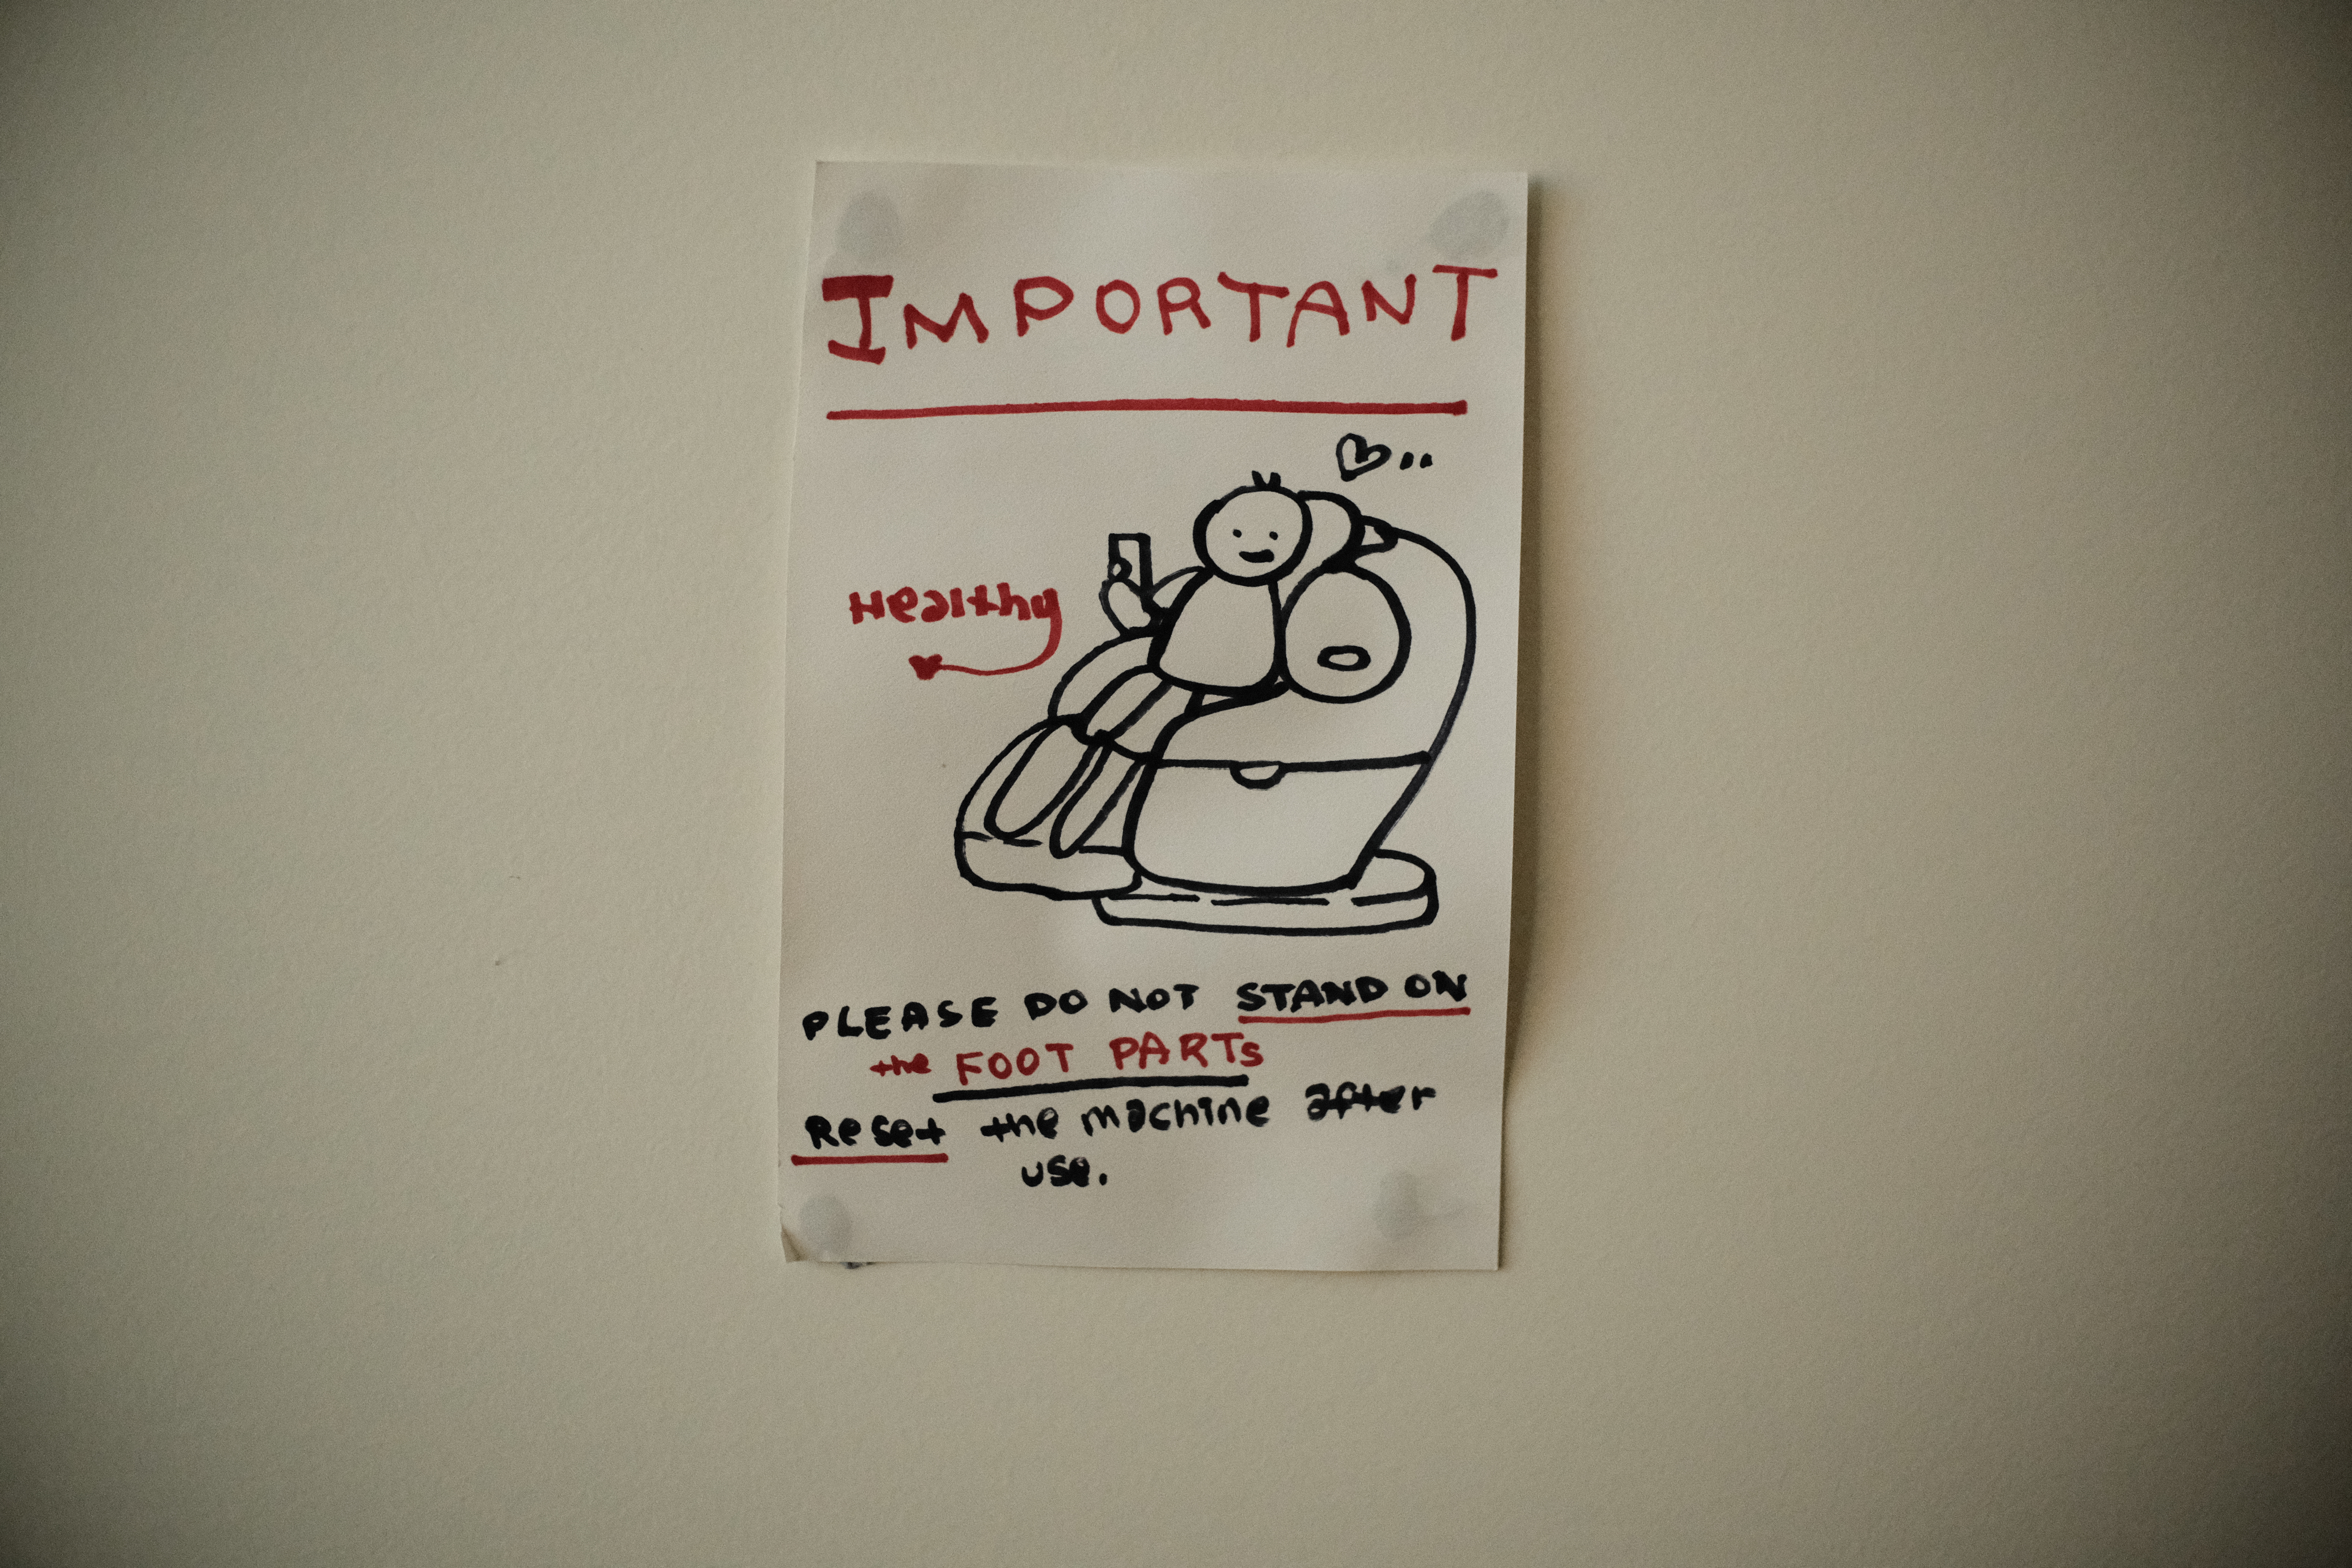 IMPORTANT
Healthy
PLEASE DO NOT STAND ON
the FOOT PARTs
Reset the machine after
use.